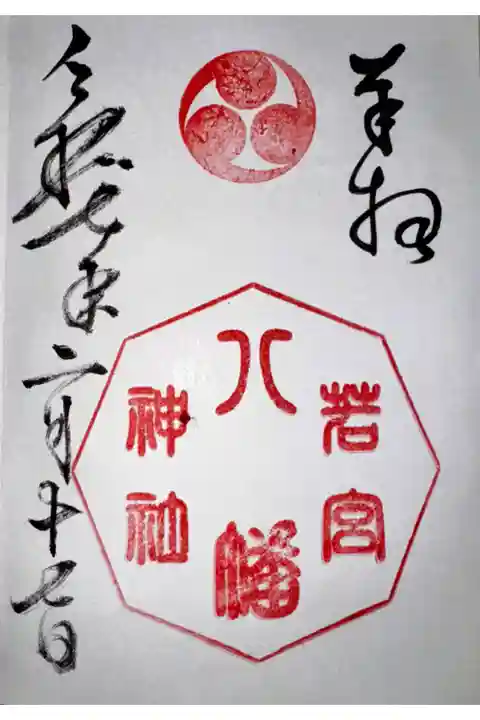 奉拝
若宮
八幡
神社
令和七年二月十七日